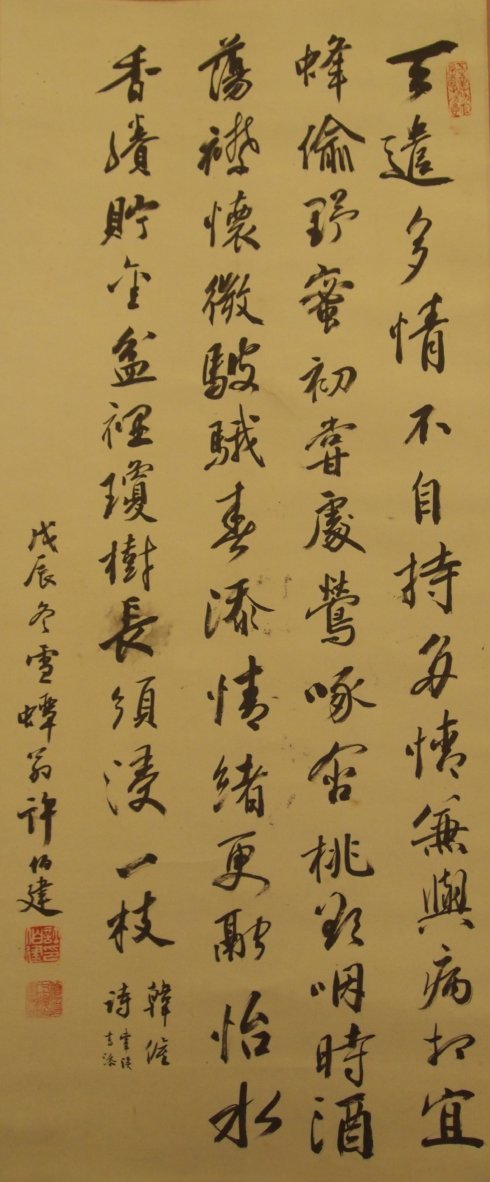 天遣多情不自持多情兼與病相宜
蜂偷野蜜初嘗處鶯啄含桃欲咽時酒
蕩襟懷微駊騀春添情緒更融怡水
香賸貯金盆裡瓊樹長須浸一枝
韓偓
詩
戊辰冬雪蟫翁許伯建